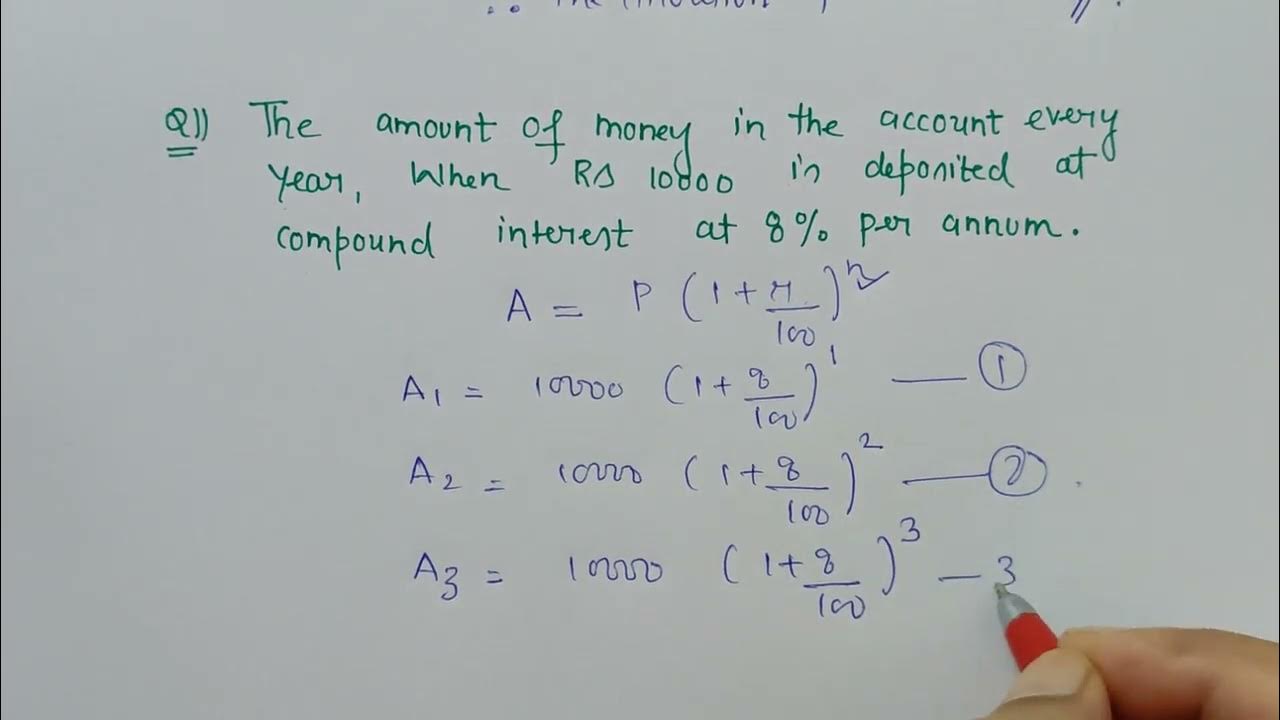 ∴ The
Q)) The amount of money in the account every
year, When Rs 10000 is deposited at
compound interest at 8% per annum.
A = P (1 + r/100)^n
A1 = 10000 (1 + 8/100)^1 — 1
A2 = 10000 (1 + 8/100)^2 — 2
A3 = 10000 (1 + 8/100)^3 — 3